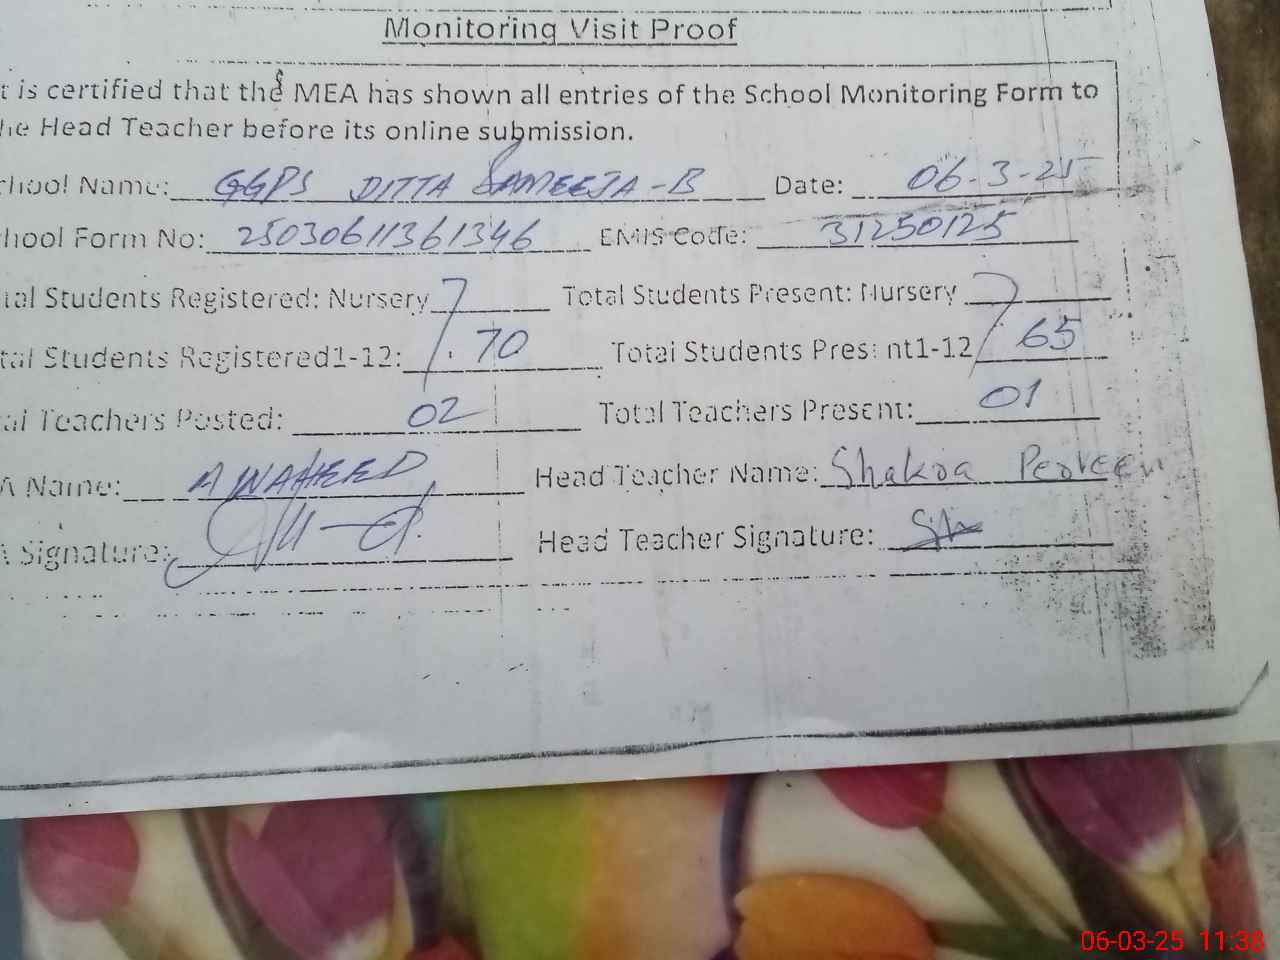 Monitoring Visit Proof
t is certified that the MEA has shown all entries of the School Monitoring Form to
he Head Teacher before its online submission.
chool Name: GGPS DITTA SAMEEJA-B Date: 06-3-25
hool Form No: 25030611361346 EMIS Code: 31250125
tal Students Registered: Nursery 7 Total Students Present: Nursery 7
tal Students Registered1-12: 70 Total Students Present1-12 65
al Teachers Posted: 02 Total Teachers Present: 01
A Name: A WAHEED Head Teacher Name: Shakra Perveen
A Signature: Head Teacher Signature:
06-03-25 11:38